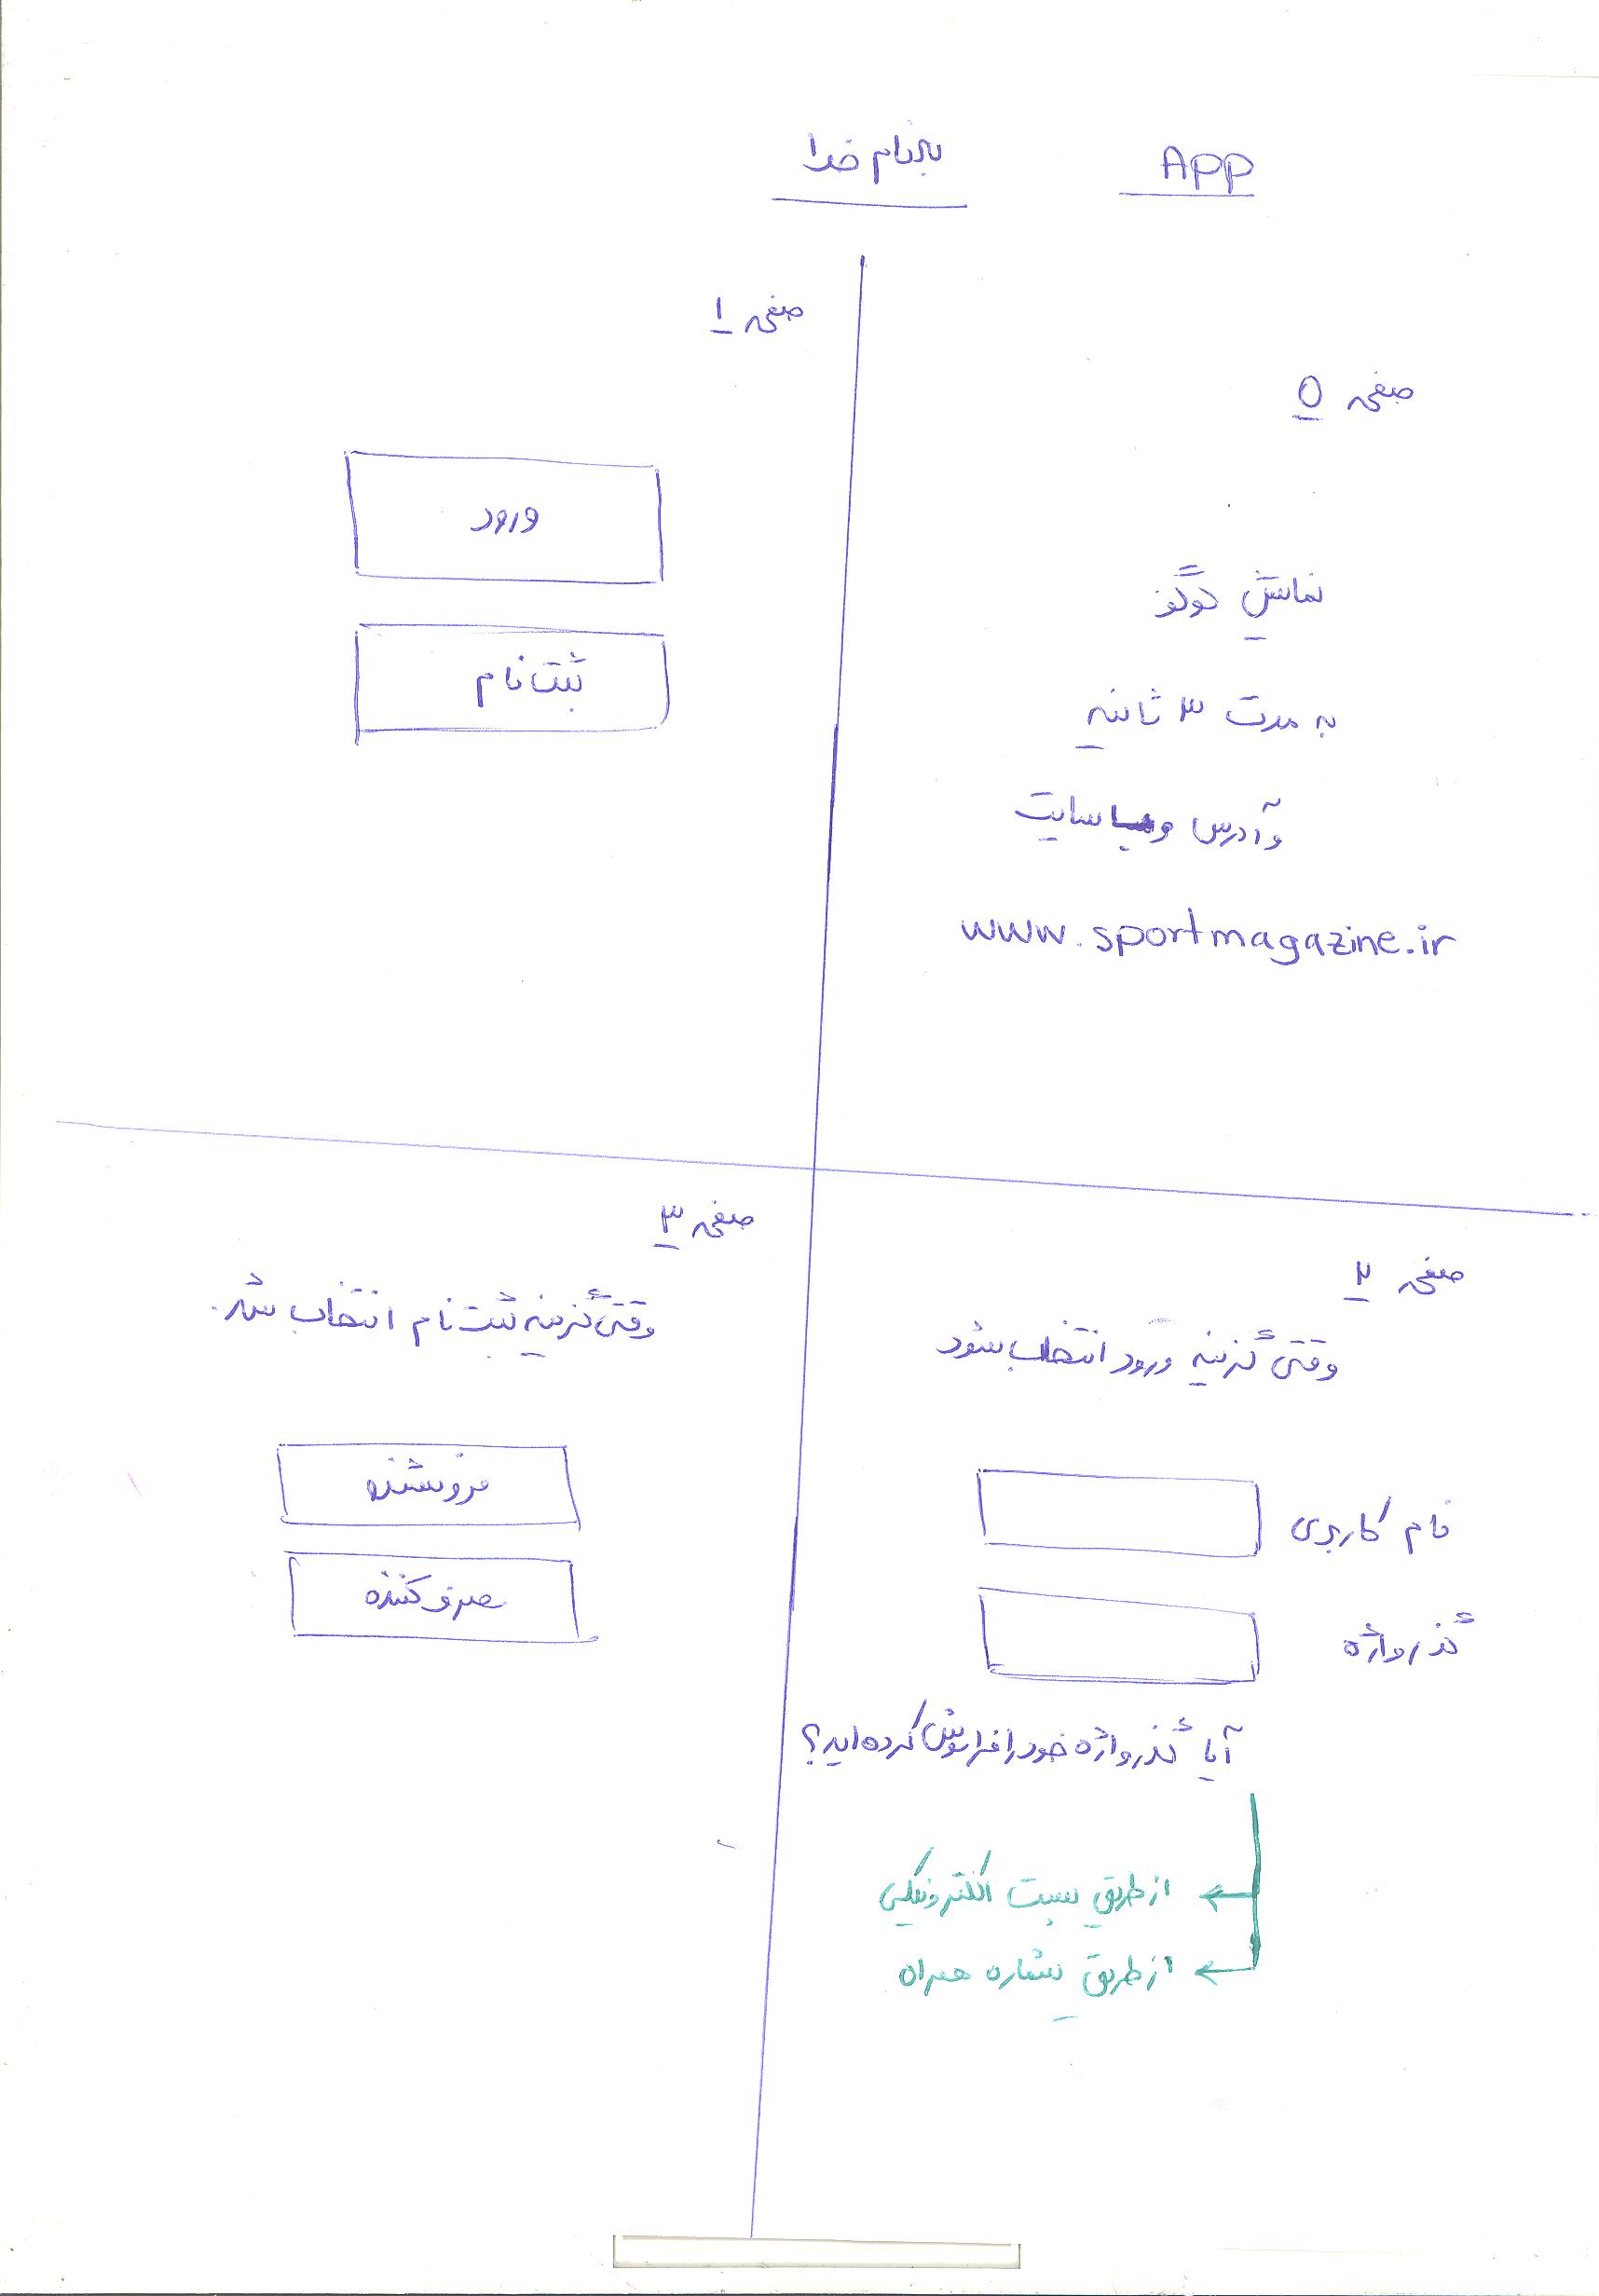 به نام خدا
App
صفحه 0
نمایش لوگو
به مدت ۳ ثانیه
و آدرس وب سایت
www.sportmagazine.ir
صفحه ۱
ورود
ثبت نام
صفحه ۲
وقتی گزینه ورود انتخاب شود
نام کاربری
گذرواژه
آیا گذرواژه خود را فراموش کرده اید؟
از طریق پست الکترونیکی
از طریق شماره همراه
صفحه ۳
وقتی گزینه ثبت نام انتخاب شد.
فروشنده
مصرف کننده